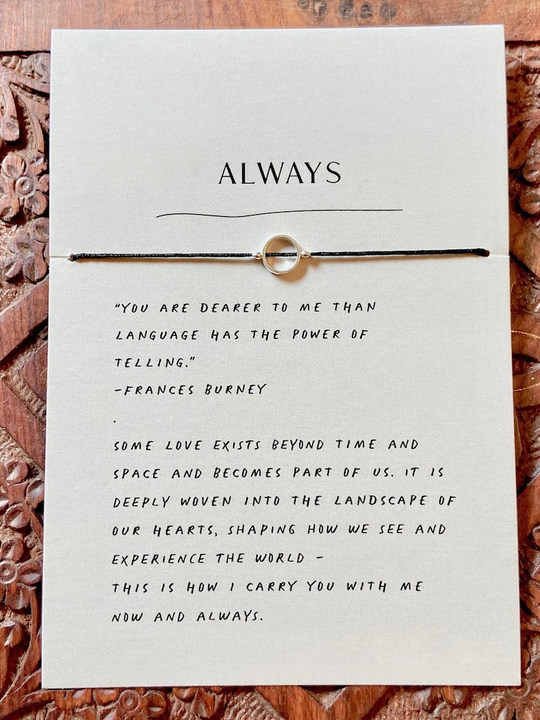 ALWAYS
"YOU ARE DEARER TO ME THAN
LANGUAGE HAS THE POWER OF
TELLING."
-FRANCES BURNEY
.
SOME LOVE EXISTS BEYOND TIME AND
SPACE AND BECOMES PART OF US. IT IS
DEEPLY WOVEN INTO THE LANDSCAPE OF
OUR HEARTS, SHAPING HOW WE SEE AND
EXPERIENCE THE WORLD -
THIS IS HOW I CARRY YOU WITH ME
NOW AND ALWAYS.